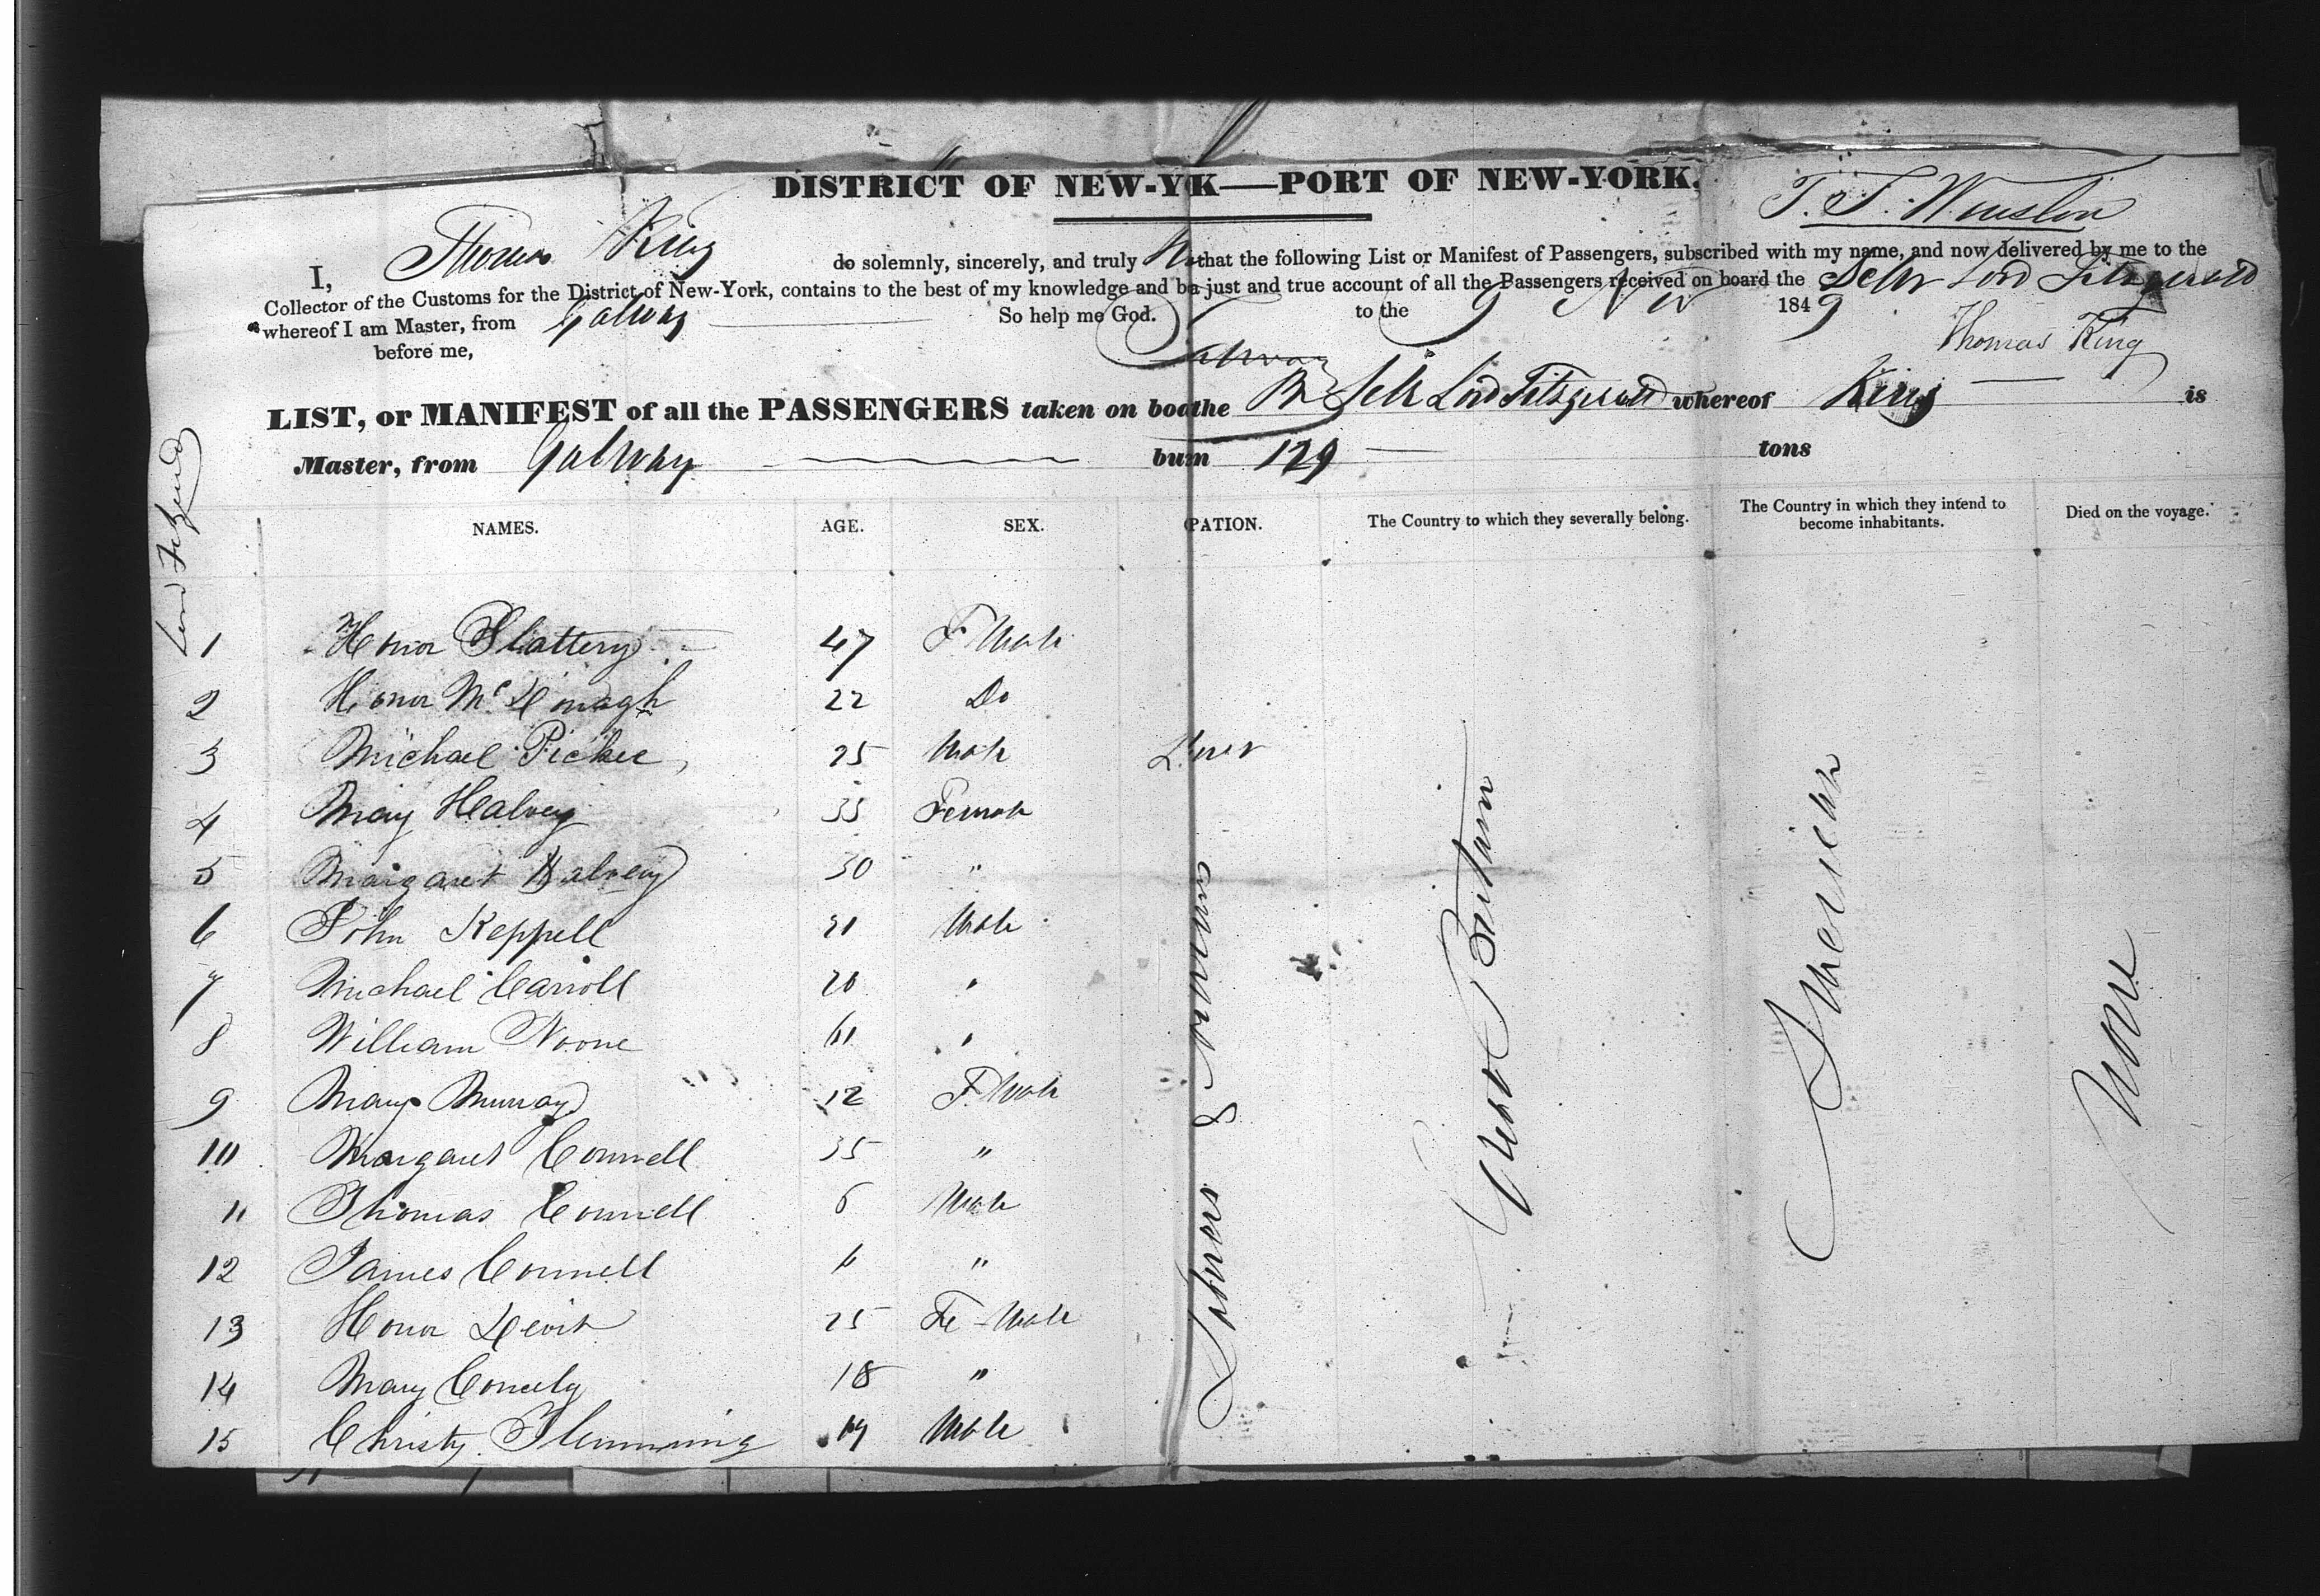 DISTRICT OF NEW-YK—PORT OF NEW-YORK.
T. F. Winslow
I, Thomas King do solemnly, sincerely, and truly that the following List or Manifest of Passengers, subscribed with my name, and now delivered by me to the
Collector of the Customs for the District of New-York, contains to the best of my knowledge and be just and true account of all the Passengers received on board the Schr Lord Fitzgerald
whereof I am Master, from Galway So help me God. to the 9 Nov 1849
before me, Thomas King
LIST, or MANIFEST of all the PASSENGERS taken on boathe Br Schr Lord Fitzgerald whereof King is
Master, from Galway burn 129 tons
Lord Fitzgerald
NAMES. AGE. SEX. PATION. The Country to which they severally belong. The Country in which they intend to become inhabitants. Died on the voyage.
1 Honor Slattery 47 F Male
2 Honor Mc Donagh 22 Do
3 Michael 25 Male
4 Mary Halvey 35 Female
5 Margaret Halvey 30 "
6 John Keppell 21 Male
7 Michael Carroll 20 "
8 William Noone "
9 Mary Murray 12 F Male
10 Margaret Connell 35 "
11 Thomas Connell 6 Male
12 James Connell "
13 Honor 25 Fe-Male
14 Mary Coneely 18 "
15 Christy Flemming 19 Male
Great Britain
America
None